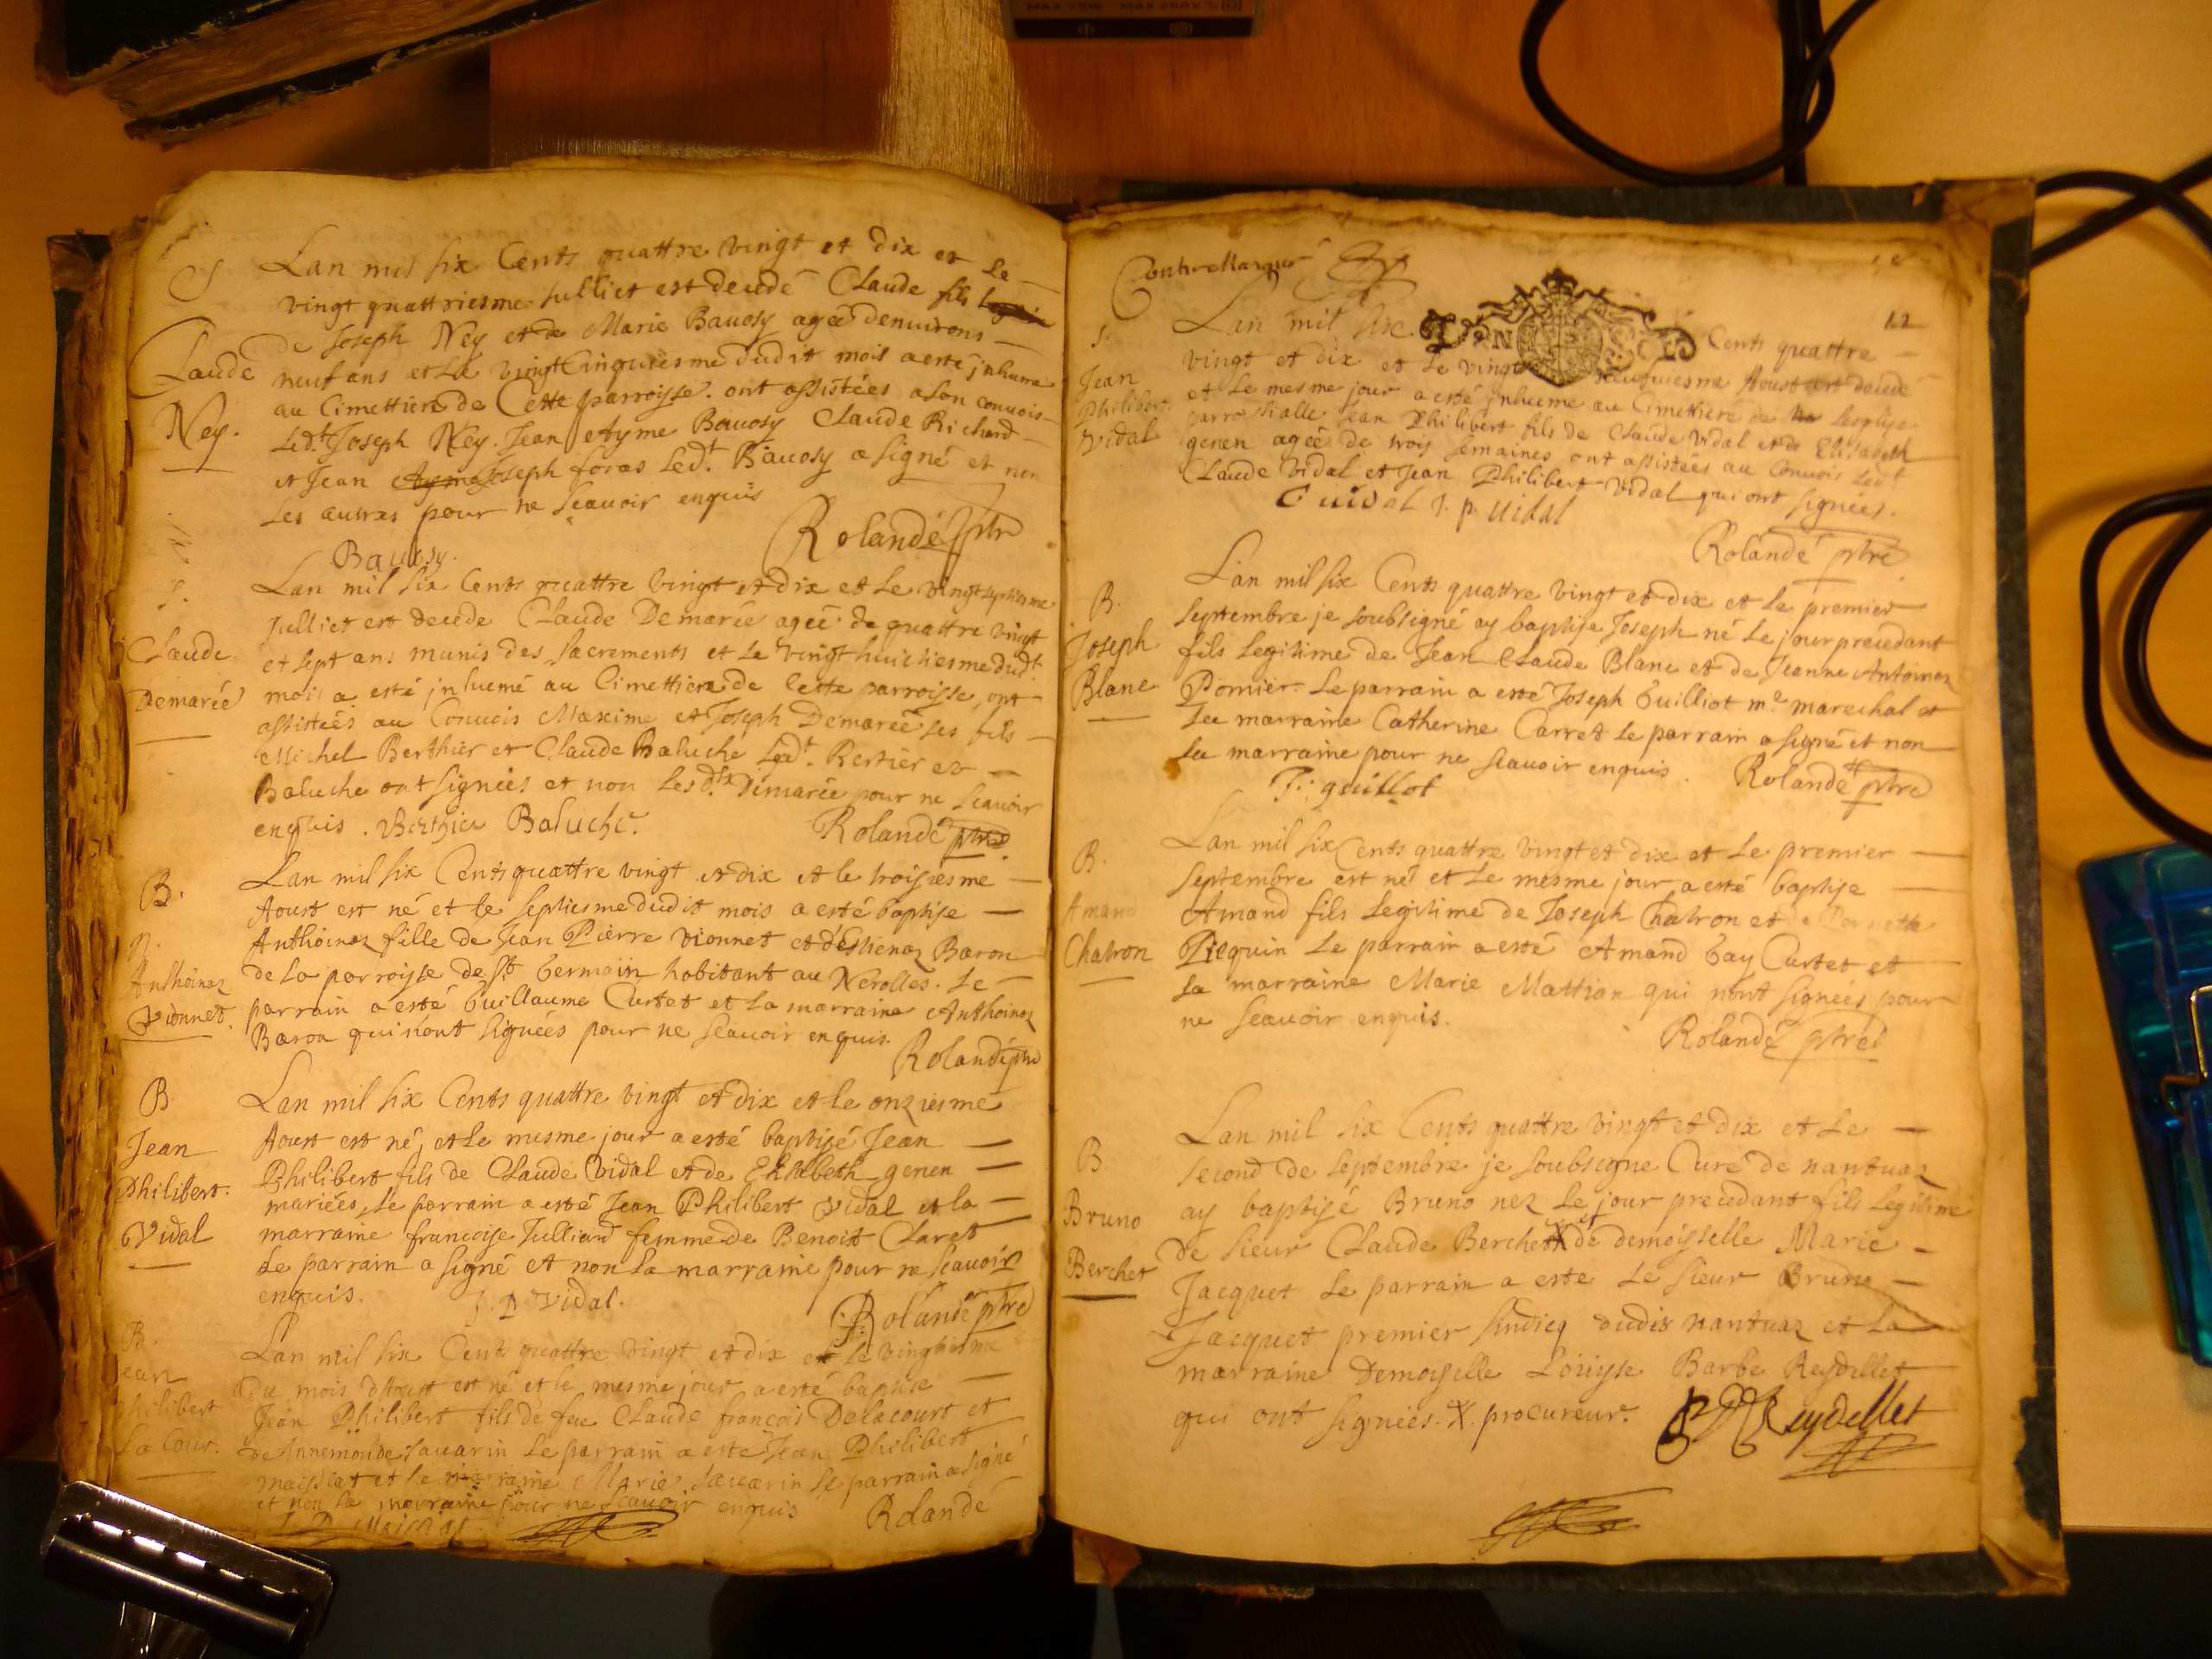 S
Lan mil six Cents quattre vingt et dix et Le
vingt quattriesme Julliet est decedé Claude fils
Claude
Ney.
de Joseph Ney et de Marie Bavosy ageé denuirons
neuf ans et Le vingt Cinquiesme dudit mois a esté jnhumé
au Cimettiere de Cette parroisse. ont assistées a son convois
Led.t Joseph Ney. Jean Ayme Bavosy Claude Richard
et Jean Joseph foras Led.t Bavosy a signé et non
Les autres pour ne scauoir enquis
Bavosy.
Rolandé ptre
S.
Claude
Demarée
Lan mil six Cents quattre vingt et dix et Le vingt septiesme
Julliet est decedé Claude Demarée ageé de quattre vingt
et sept ans munis des sacrements et Le vingt huictiesme dud.t
mois a esté jnhumé au Cimettiere de Cette parroisse, ont
assistées au Convois Maxime et Joseph Demareé ses fils
Michel Berthier et Claude Baluche Led.t Bertier et
Baluche ont signées et non Lesd.ts Demarée pour ne scauoir
enquis. Berthier Baluche.
Rolandé ptre
B.
Anthoinaz
Vionnet.
Lan mil six Cents quattre vingt et dix et le troisiesme
Aoust est né et le septiesme dudit mois a esté baptise
Anthoinaz fille de Jean Pierre Vionnet et d'Estienaz Baron
de La parroisse de St Germain habitant au Nerolles. Le
parrain a esté Guillaume Curtet et La marraine Anthoinaz
Baron qui n'ont signées pour ne scauoir enquis.
Rolandé ptre
B
Jean
Philibert.
Vidal
Lan mil six Cents quattre vingt et dix et le onziesme
Aoust est né, et Le mesme jour a esté baptisé Jean
Philibert fils de Claude Vidal et de Elisabeth genen
mariées, Le parrain a esté Jean Philibert Vidal et la
marraine francoise Julliard femme de Benoist Claret
Le parrain a signé et non La marraine pour ne scauoir
enquis.
J. P Vidal.
Rolandé ptre
B.
Jean
Philibert
La Cour.
Lan mil six Cent quattre vingt et dix et le vingtiesme
du mois d'Aoust est né et le mesme jour a esté baptise
Jean Philibert fils de feu Claude françois Delacourt et
de Annemonde Sauarin Le parrain a esté Jean Philibert
maissiat et La marraine Marie Sauarin Le parrain a signé
et non La marraine pour ne scauoir enquis
J. P. Maissiat
Rolandé
Contre Marqué
12
S.
Jean
Philibert
Vidal
Lan mil six Cents quattre
vingt et dix et Le vingt neufuiesme Aoust est decedé
et Le mesme jour a esté jnhumé au Cimettiere de Lesglise
parrochialle Jean Philibert fils de Claude Vidal et de Elisabeth
genen ageé de trois semaines ont assistées au Convois Led.t
Claude Vidal et Jean Philibert Vidal qui ont signées.
C uidal J. p. uidal
Rolandé ptre
B.
Joseph
Blanc
Lan mil six Cents quattre vingt et dix et Le premier
septembre je soubsigné ay baptise Joseph né Le jour precedant
fils Legitime de Jean Claude Blanc et de Jeanne Antoinaz
Pornier. Le parrain a esté Joseph Guilliot m.e marechal et
La marraine Catherine Carret Le parrain a signé et non
La marraine pour ne scauoir enquis.
J. guillot
Rolandé ptre
B.
Amand
Chatron
Lan mil six Cents quattre vingt et dix et Le premier
septembre est né et Le mesme jour a esté baptise
Amand fils Legitime de Joseph Chatron et de Pernette
Picquin Le parrain a esté Amand Gay Curtet et
La marraine Marie Mattian qui n'ont signées pour
ne scauoir enquis.
Rolandé ptre
B
Bruno
Berchet
Lan mil six Cents quattre vingt et dix et Le
second de septembre je soubsigne Curé de nantuaz
ay baptisé Bruno nez Le jour precedant fils Legitime
de sieur Claude Berchet X et de demoisselle Marie
Jacquet Le parrain a este Le sieur Bruno
Jacquet premier sindicq dudit nantuaz et La
marraine Demoyselle Louyse Barbe Reydellet
qui ont signées. X. procureur.
Reydellet